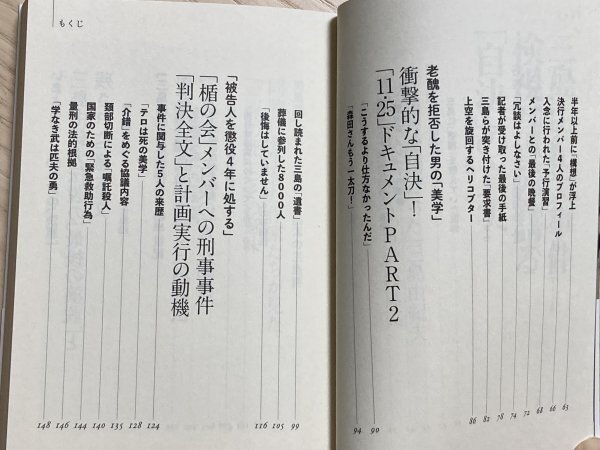 半年以上前に「構想」が浮上 63
決行メンバー4人のプロフィール 66
入念に行われた「予行演習」 68
メンバーとの「最後の晩餐」 72
「冗談はよしなさい」 74
記者が受け取った最後の手紙 78
三島らが突き付けた「要求書」 82
上空を旋回するヘリコプター 86
老醜を拒否した男の「美学」
衝撃的な「自決」!
「11・25」ドキュメントPART2
「こうするより仕方なかったんだ」 90
「森田さんもう一太刀!」 94
もくじ
回し読まれた三島の「遺書」 99
葬儀に参列した8000人 105
「後悔はしていません」 116
「被告人を懲役4年に処する」
「楯の会」メンバーへの刑事事件
「判決全文」と計画実行の動機
事件に関与した5人の来歴 124
「テロは死の美学」 128
「介錯」をめぐる協議内容 135
頸部切断による「嘱託殺人」 140
国家のための「緊急救助行為」 144
量刑の法的根拠 146
「学なき武は匹夫の勇」 148